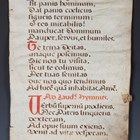 fit panis hominum:
Dat panis coelicus
figuris terminum:
O res mirabilis!
manducat Dominum
Pauper, servus, et humilis.
Te trina Deitas
unaque poscimus,
Sic nos tu visita,
sicut te colimus:
Per tuas semitas
duc nos quo tendimus,
Ad lucem quam inhabitas. Amen.
Ad Laudes Hymnus.
Verbum supernum prodiens,
Nec Patris linquens
dexteram,
Ad opus suum exiens,
Venit ad vitae vesperam.